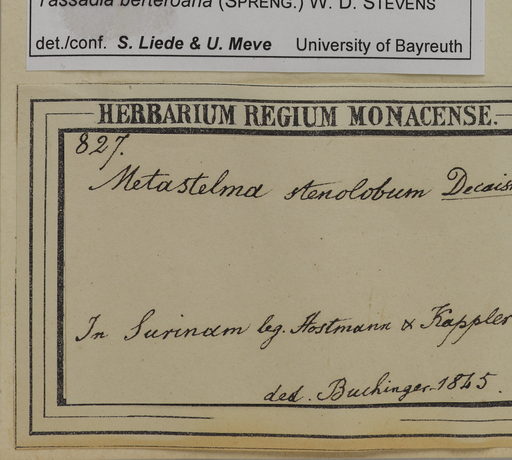 Tassadia berteroana (SPRENG.) W. D. STEVENS
det./conf. S. Liede & U. Meve University of Bayreuth
HERBARIUM REGIUM MONACENSE.
827.
Metastelma stenolobum Decaisn
In Surinam leg. Hostmann & Kappler
ded. Buchinger. 1845.